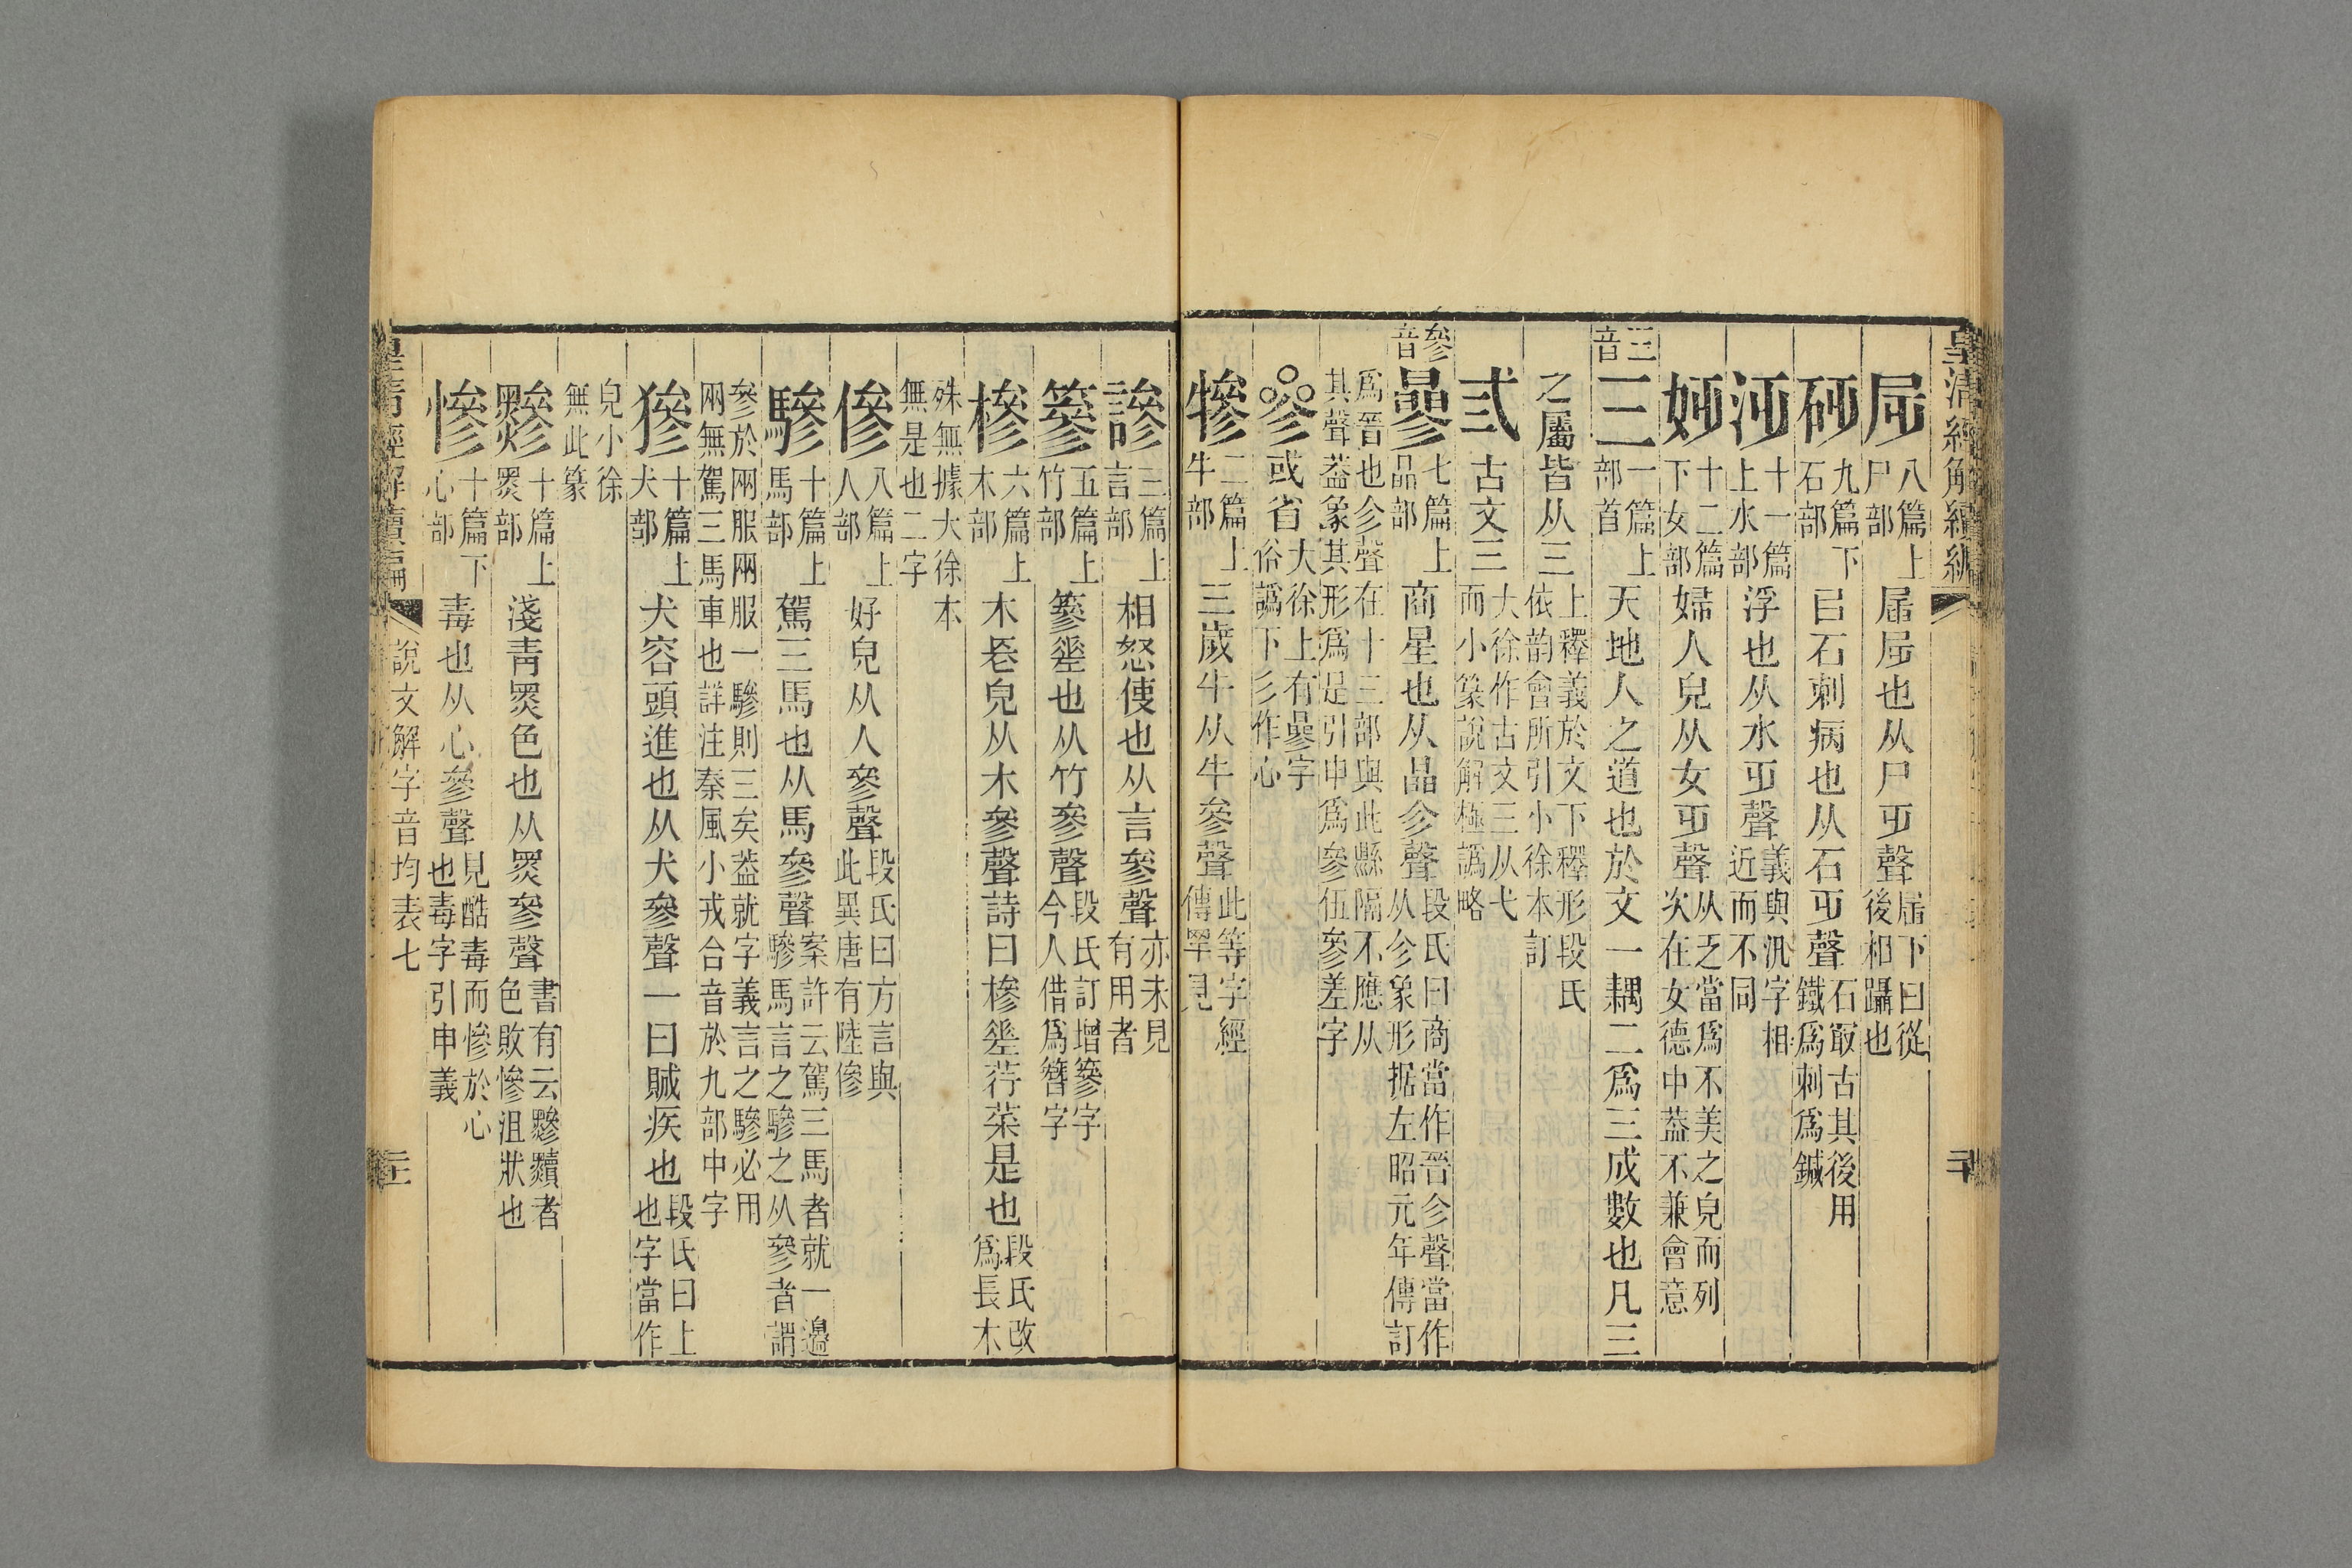 皇清經解續編
屇八篇上尸部屇屇也从尸丏聲屇下曰從後相躡也
砭九篇下石部㠯石刺病也从石丏聲石㪅古其後用鐵爲刺爲鍼
泛十一篇上水部浮也从水丏聲義與汎字相近而不同
十二篇下女部婦人皃从女丏聲从乏當爲不美之皃而列次在女德中葢不兼會意
三音
三一篇上部首天地人之道也於文一耦二爲三成數也凡三
之屬皆从三上釋義於文下釋形段氏依韵會所引小徐本訂
弎古文三大徐作古文三从弋而小篆說解極譌略
參音
曑七篇上晶部商星也从晶㐱聲段氏曰商當作晉㐱聲當作从㐱象形据左昭元年傳訂
爲晉也㐱聲在十三部與此縣隔不應从其聲葢象其形爲是引申爲參伍參差字
或省大徐上有曑字俗譌下彡作心
犙二篇上牛部三歲牛从牛參聲此等字經傳罕見
謲三篇上言部相怒使也从言參聲亦未見有用者
篸五篇上竹部篸𥰭也从竹參聲段氏訂增篸字今人借爲簪字
槮六篇上木部木長皃从木參聲詩曰槮𡍮荇菜是也段氏改爲長木
殊無據大徐本無是也二字
傪八篇上人部好皃从人參聲段氏曰方言與此異唐有陸傪
驂十篇上馬部駕三馬也从馬參聲案許云駕三馬者就一邊驂馬言之驂之从參者謂
參於兩服兩服一驂則三矣葢就字義言之驂必用兩無駕三馬車也詳注秦風小戎合音於九部中字
㺑十篇上犬部犬容頭進也从犬參聲一曰賊疾也段氏曰上也字當作
皃小徐無此篆
黲十篇上黑部淺青黑色也从黑參聲書有云黲黷者色敗慘沮狀也
慘十篇下心部毒也从心參聲見酷毒而慘於心也毒字引申義
皇清經解續編
說文解字音均表七